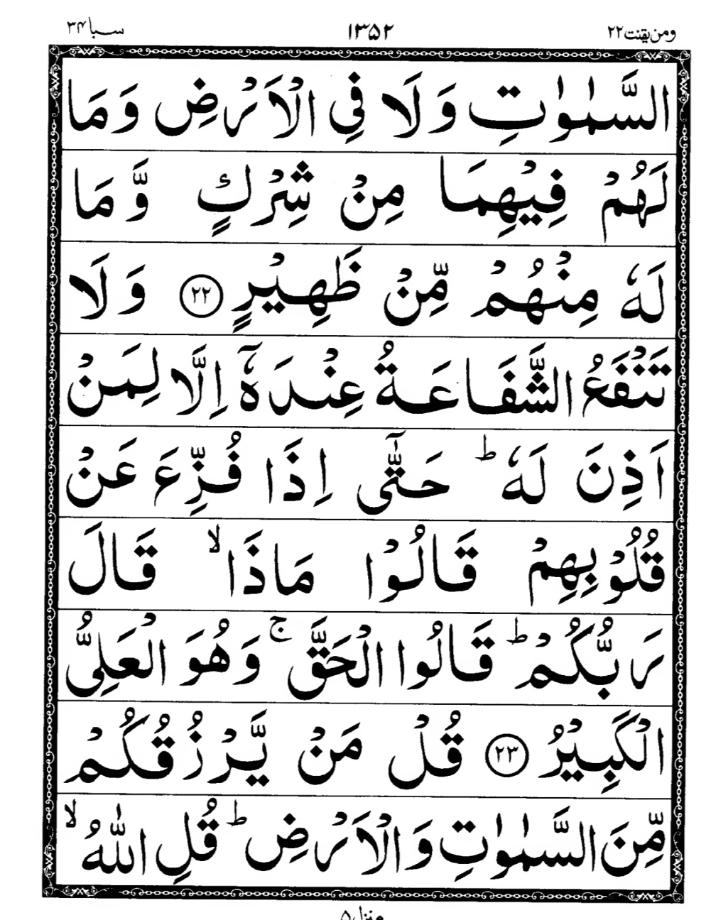 ومن يقنت ٢٢ ١٣٥٢ سبا ٣٤
السَّمٰوٰتِ وَلَا فِي الْاَرْضِ وَمَا
لَهُمْ فِيْهِمَا مِنْ شِرْكٍ وَّمَا
لَهٗ مِنْهُمْ مِّنْ ظَهِيْرٍ ﴿٢٢﴾ وَلَا
تَنْفَعُ الشَّفَاعَةُ عِنْدَهٗۤ اِلَّا لِمَنْ
اَذِنَ لَهٗ ؕ حَتّٰۤى اِذَا فُزِّعَ عَنْ
قُلُوْبِهِمْ قَالُوْا مَاذَا ۙ قَالَ
رَبُّكُمْ ؕ قَالُوا الْحَقَّ ۚ وَهُوَ الْعَلِيُّ
الْكَبِيْرُ ﴿٢٣﴾ قُلْ مَنْ يَّرْزُقُكُمْ
مِّنَ السَّمٰوٰتِ وَالْاَرْضِ ؕ قُلِ اللّٰهُ ۙ
منزل ٥